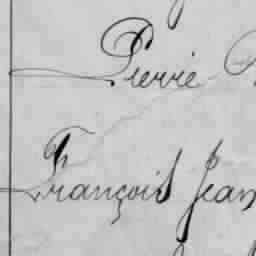 Pierre
François Jean